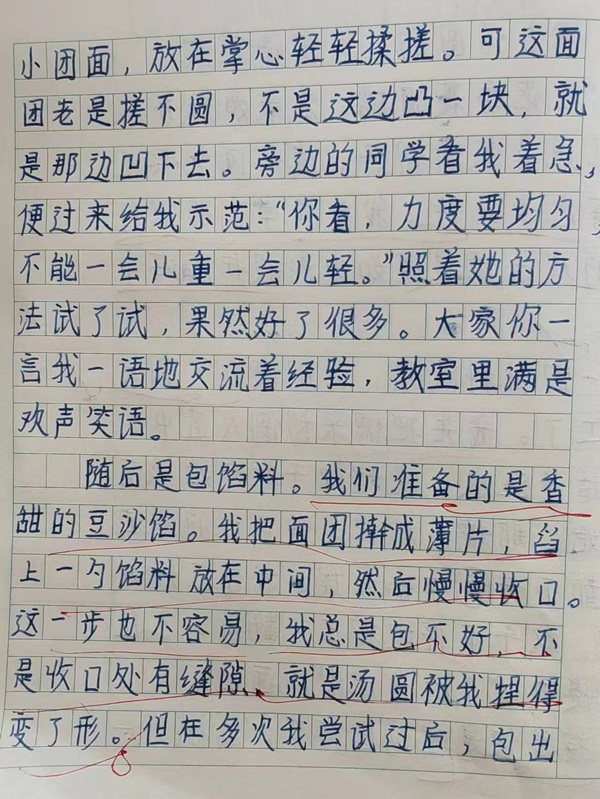 小团面，放在掌心轻轻揉搓。可这面
团老是搓不圆，不是这边凸一块，就
是那边凹下去。旁边的同学看我着急，
便过来给我示范：“你看，力度要均匀，
不能一会儿重一会儿轻。”照着她的方
法试了试，果然好了很多。大家你一
言我一语地交流着经验，教室里满是
欢声笑语。
随后是包馅料。我们准备的是香
甜的豆沙馅。我把面团擀成薄片，舀
上一勺馅料放在中间，然后慢慢收口。
这一步也不容易，我总是包不好，不
是收口处有缝隙、就是汤圆被我捏得
变了形。但在多次我尝试过后，包出